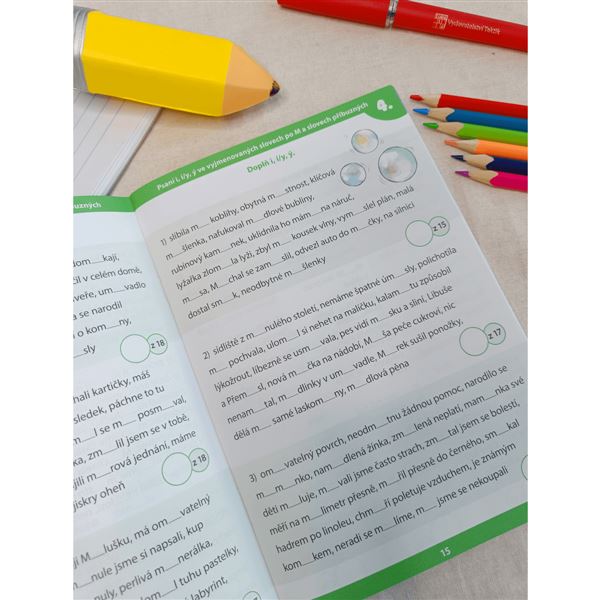 Vydavatelství Taktik
Psaní i, í/y, ý ve vyjmenovaných slovech po M a slovech příbuzných
4.
Doplň i, í/y, ý.
1) slíbila m__ koblihy, obytná m__stnost, klíčová
m__šlenka, nafukoval m__dlové bubliny,
rubínový kam__nek, uklidnila ho mám__ na náruč,
lyžařka zlom__la lyži, zbyl m__ kousek vlny, vym__slel plán, malá
m__sa, M__chal se zam__slil, odvezl auto do m__čky, na silnici
dostal sm__k, neodbytné m__šlenky
z 15
2) sídliště z m__nulého století, nemáme špatné úm__sly, polichotila
m__ pochvala, ulom__l si nehet na malíčku, kalam__tu způsobil
lýkožrout, líbezně se usm__vala, pes vidí m__sku a sliní, Libuše
a Přem__sl, nová m__čka na nádobí, M__ša peče cukroví, nic
nenam__tal, m__dlinky v um__vadle, M__rek sušil ponožky,
dělá m__ samé laskom__ny, m__dlová pěna
z 17
3) om__vatelný povrch, neodm__tnu žádnou pomoc, narodilo se
m__m__nko, nam__dlená žínka, zm__lená neplatí, mam__nka své
děti m__luje, m__vali jsme často strach, zm__tal jsem se bolestí,
měří na m__limetr přesně, m__řil přesně do černého, sm__kal
hadrem po linoleu, chm__ří poletuje vzduchem, je známým
kom__kem, neradi se m__líme, m__ jsme se nekoupali
15
buzných
dom__kají,
čil v celém domě,
veře, um__vadlo
a se narodil
i o kom__ny,
__sly
z 18
nali kartičky, máš
sledek, páchne to tu
m__l se m__ posm__val,
ka, zm__lil jsem se v tobě,
ýjili m__rová jednání, máme
jiskry oheň
z 18
ji M__lušku, má om__vatelný
__nule jsme si napsali, kup
nuly, perlivá m__nerálka,
om__l tuhu pastelky,
labyrint,